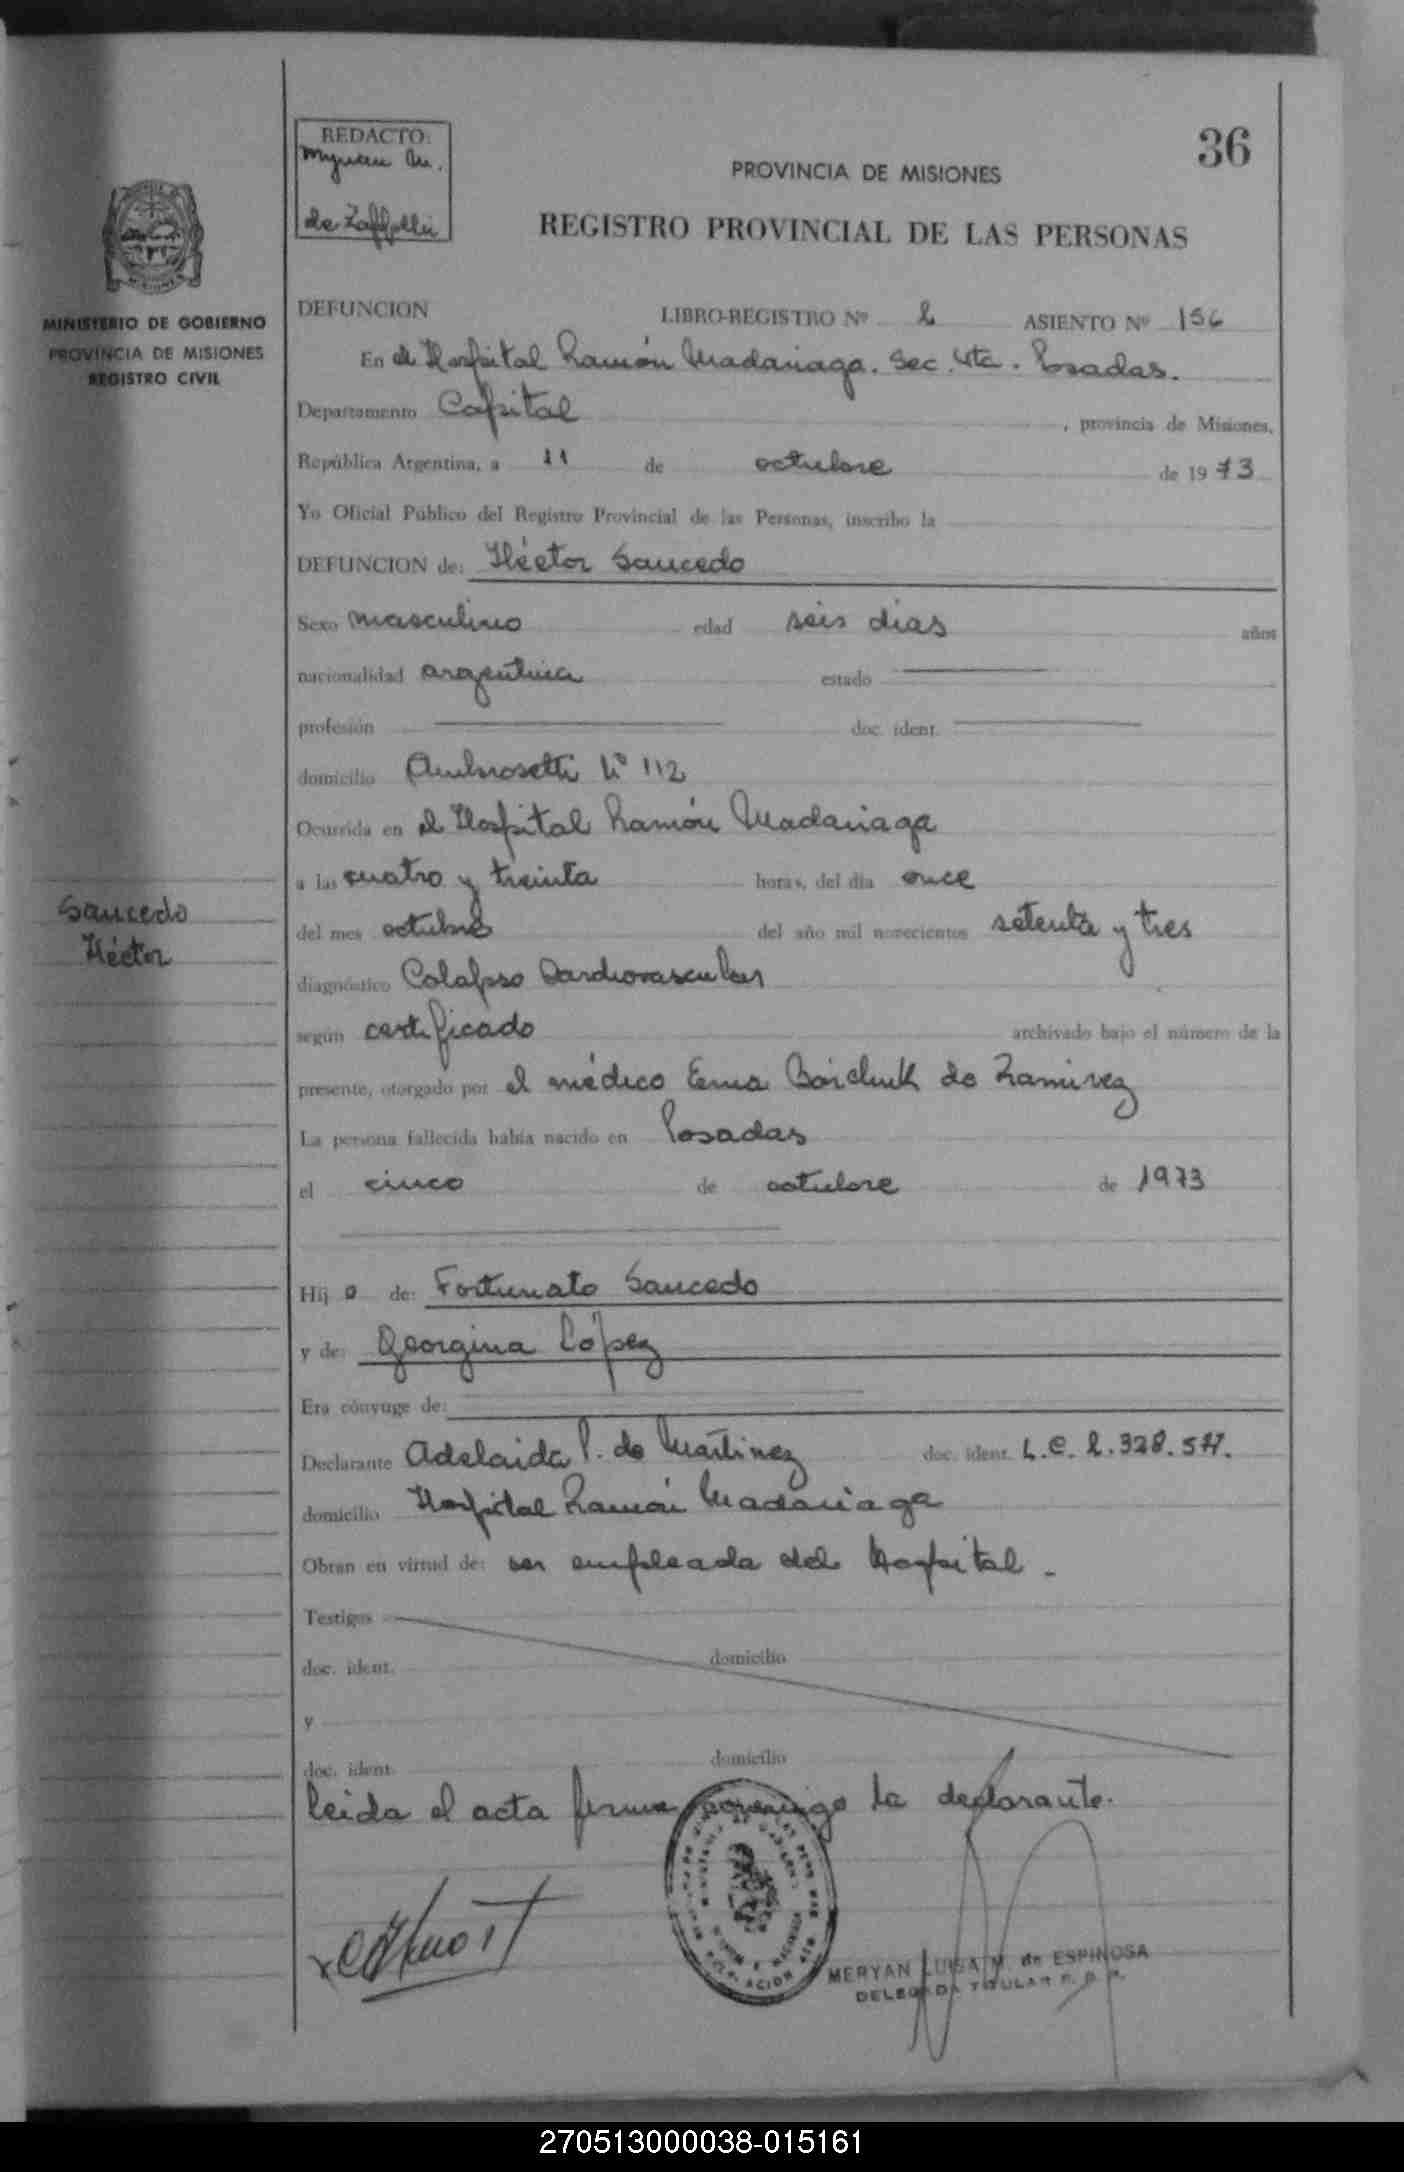 36
REDACTO:
de
PROVINCIA DE MISIONES
REGISTRO PROVINCIAL DE LAS PERSONAS
MINISTERIO DE GOBIERNO
PROVINCIA DE MISIONES
REGISTRO CIVIL
DEFUNCION LIBRO-REGISTRO Nº 2 ASIENTO Nº 156
En el Hospital Ramón Madariaga. Sec. 4ta. Posadas.
Departamento Capital , provincia de Misiones,
República Argentina, a 11 de octubre de 1973
Yo Oficial Público del Registro Provincial de las Personas, inscribo la
DEFUNCION de: Héctor Saucedo
Sexo masculino edad seis dias años
nacionalidad argentina estado
profesión doc. ident.
domicilio Ambrosetti Nº 112
Ocurrida en el Hospital Ramón Madariaga
a las cuatro y treinta horas, del día once
Saucedo
Héctor
del mes octubre del año mil novecientos setenta y tres
diagnóstico Colapso Cardiovascular
según certificado archivado bajo el número de la
presente, otorgado por el médico Ema Boichuk de Ramirez
La persona fallecida había nacido en Posadas
el cinco de octubre de 1973
Hij o de: Fortunato Saucedo
y de: Georgina López
Era cónyuge de:
Declarante Adelaida P. de Martinez doc. ident. L.C. 2.328.577.
domicilio Hospital Ramón Madariaga
Obran en virtud de: ser empleada del Hospital.
Testigos
doc. ident. domicilio
y
doc. ident. domicilio
Leida el acta firma conmigo la declarante.
MERYAN LUISA M. de ESPINOSA
DELEGADA TITULAR R. P. P.
270513000038-015161